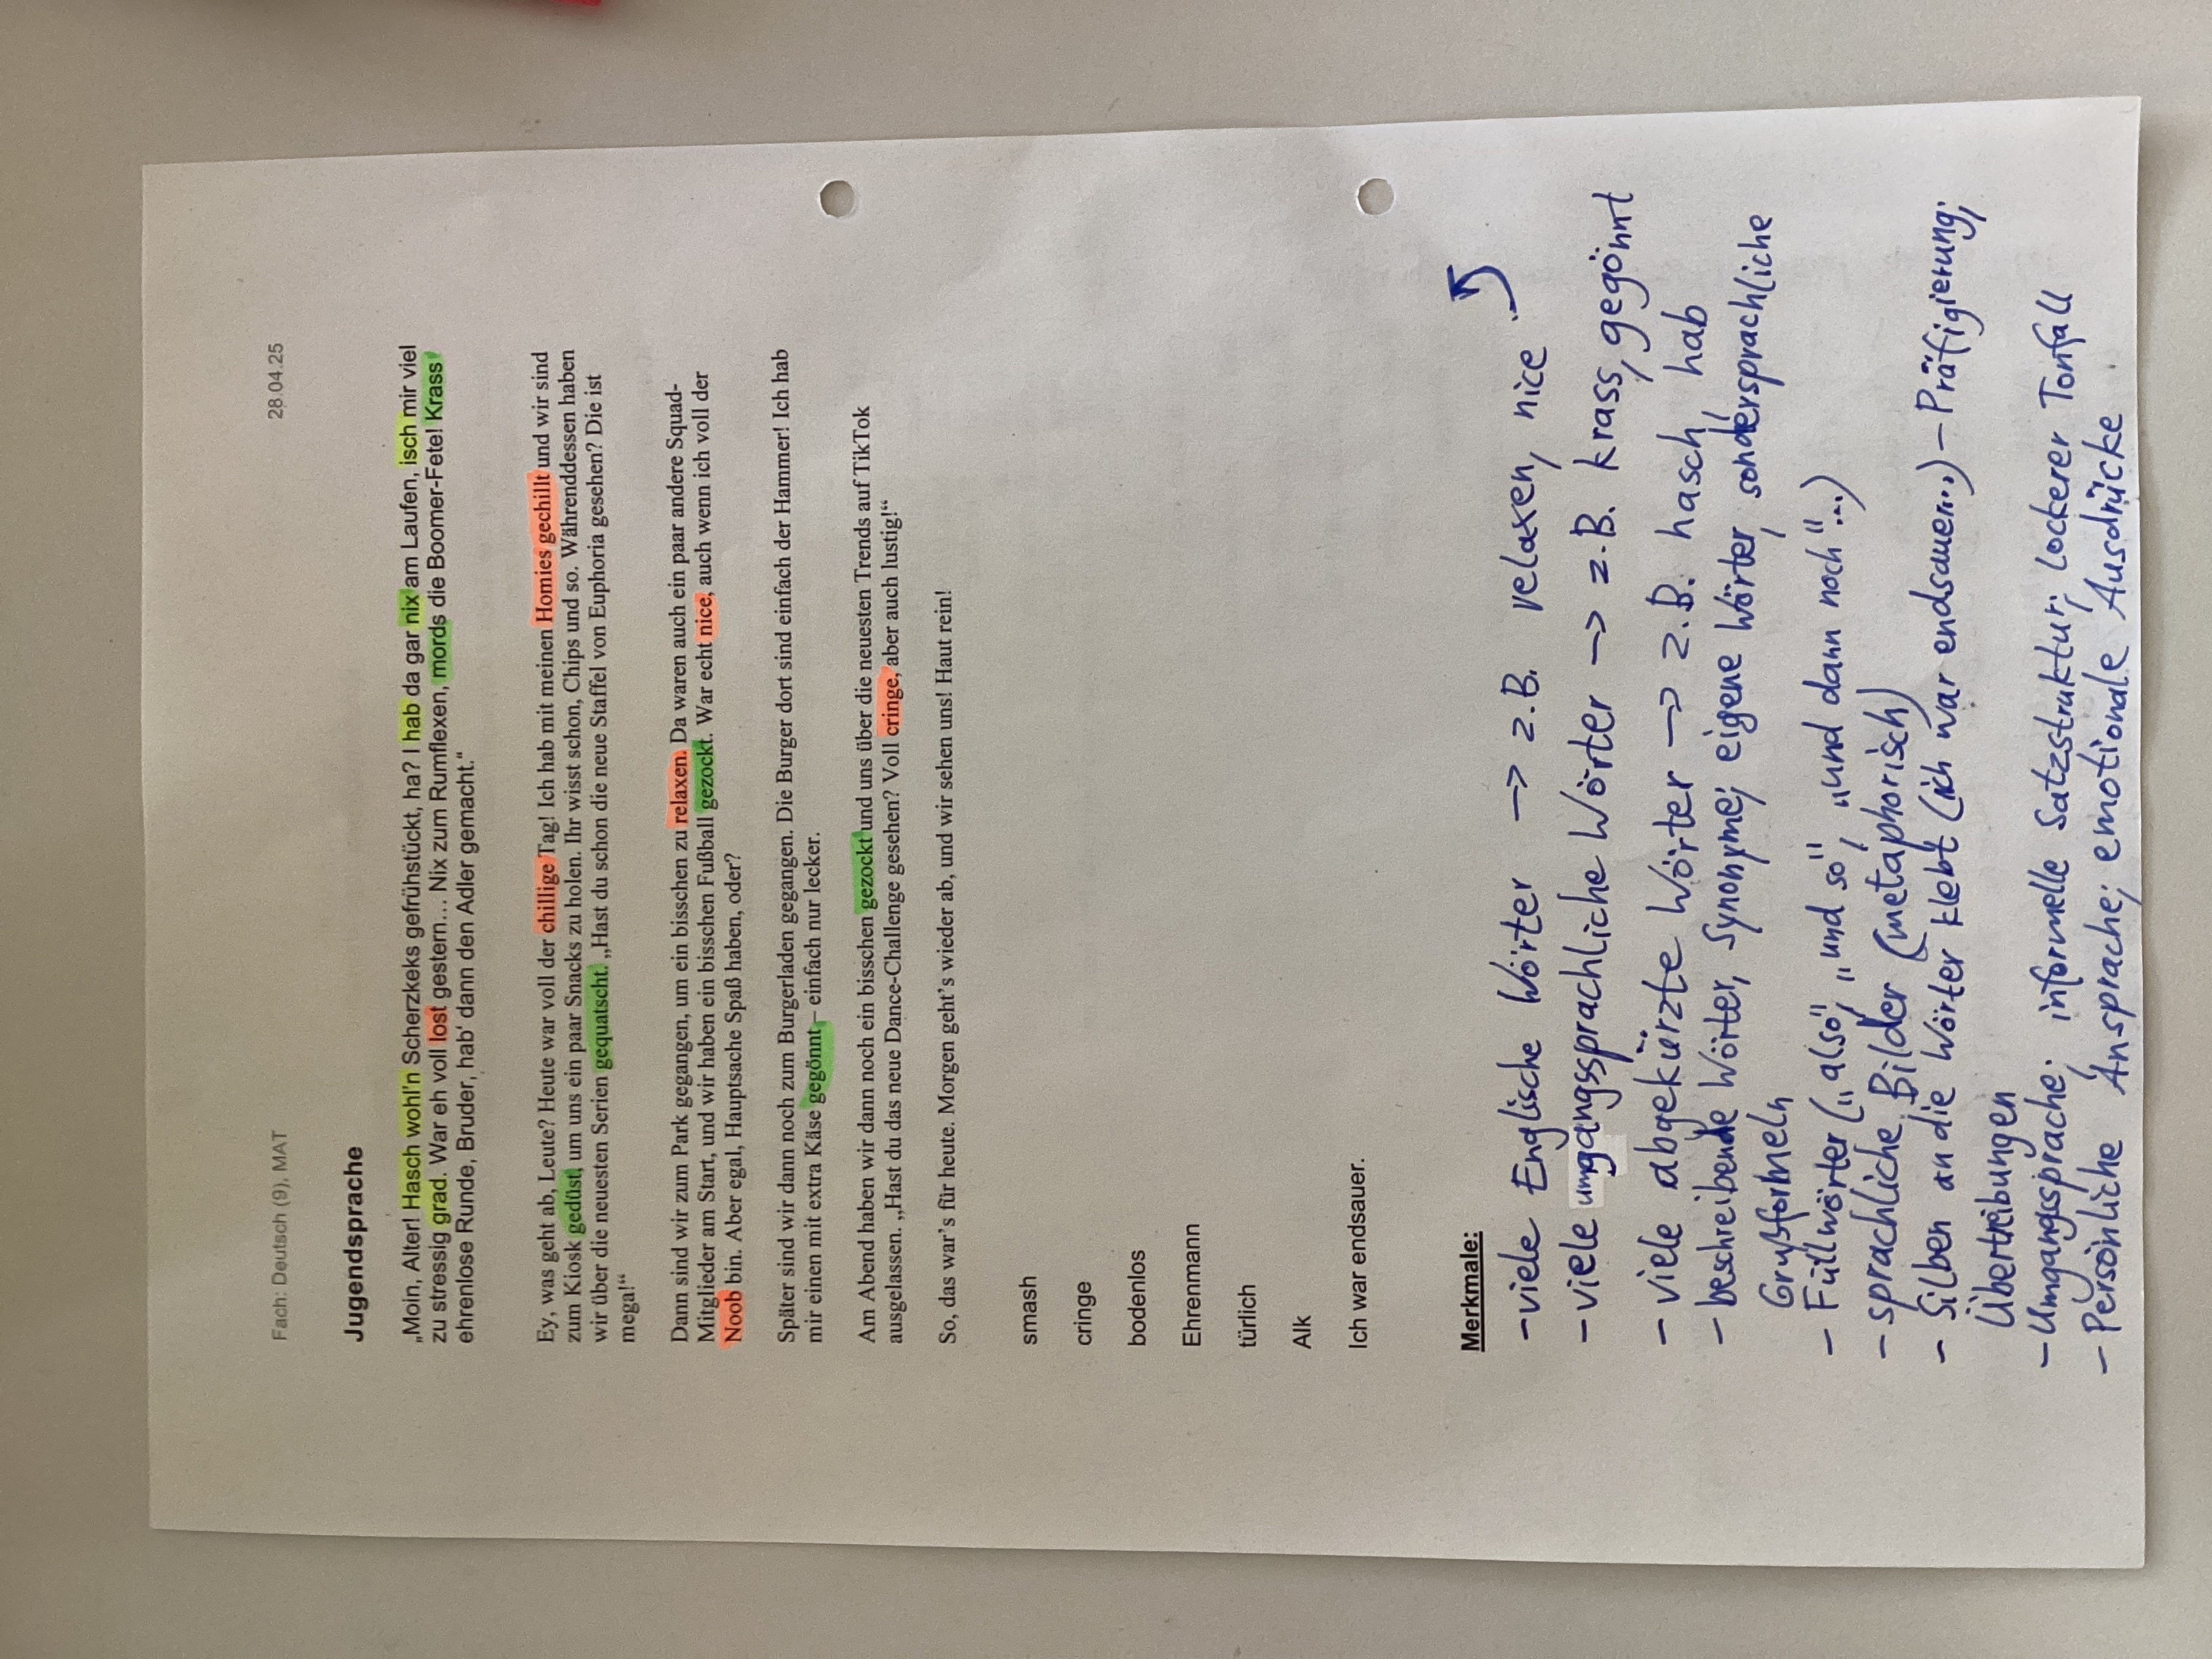 Fach: Deutsch (9), MAT 28.04.25
Jugendsprache
„Moin, Alter! Hasch wohl'n Scherzkeks gefrühstückt, ha? I hab da gar nix am Laufen, isch mir viel
zu stressig grad. War eh voll lost gestern... Nix zum Rumflexen, mords die Boomer-Fete! Krass
ehrenlose Runde, Bruder, hab' dann den Adler gemacht.“
Ey, was geht ab, Leute? Heute war voll der chillige Tag! Ich hab mit meinen Homies gechillt und wir sind
zum Kiosk gedüst, um uns ein paar Snacks zu holen. Ihr wisst schon, Chips und so. Währenddessen haben
wir über die neuesten Serien gequatscht. „Hast du schon die neue Staffel von Euphoria gesehen? Die ist
mega!“
Dann sind wir zum Park gegangen, um ein bisschen zu relaxen. Da waren auch ein paar andere Squad-
Mitglieder am Start, und wir haben ein bisschen Fußball gezockt. War echt nice, auch wenn ich voll der
Noob bin. Aber egal, Hauptsache Spaß haben, oder?
Später sind wir dann noch zum Burgerladen gegangen. Die Burger dort sind einfach der Hammer! Ich hab
mir einen mit extra Käse gegönnt – einfach nur lecker.
Am Abend haben wir dann noch ein bisschen gezockt und uns über die neuesten Trends auf TikTok
ausgelassen. „Hast du das neue Dance-Challenge gesehen? Voll cringe, aber auch lustig!“
So, das war's für heute. Morgen geht's wieder ab, und wir sehen uns! Haut rein!
smash
cringe
bodenlos
Ehrenmann
türlich
Alk
Ich war endsauer.
Merkmale:
- viele Englische Wörter -> z.B. relaxen, nice
- viele umgangssprachliche Wörter -> z.B. krass, gegönnt
- viele abgekürzte Wörter -> z.B. hasch, hab
- beschreibende Wörter, Synonyme; eigene Wörter, sondersprachliche
Grußformeln
- Füllwörter („also", „und so", „und dann noch"...)
- sprachliche Bilder (metaphorisch)
- Silben an die Wörter klebt (ich war endsauer...) - Präfigierung;
Übertreibungen
- Umgangssprache; informelle Satzstruktur; lockerer Tonfall
- Persönliche Ansprache; emotionale Ausdrücke